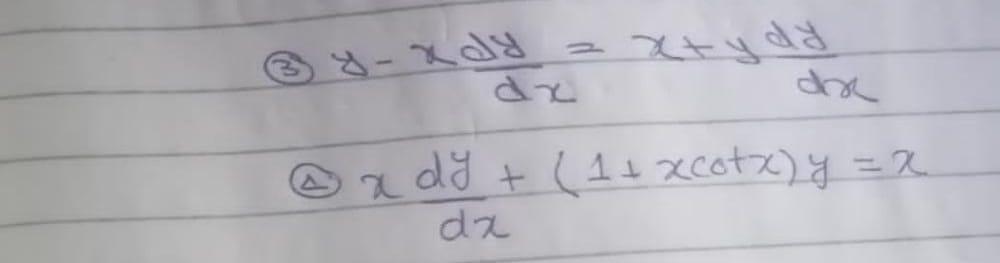 ③ y - x dy/dx = x + y dy/dx
④ x dy/dx + (1 + x cot x) y = x